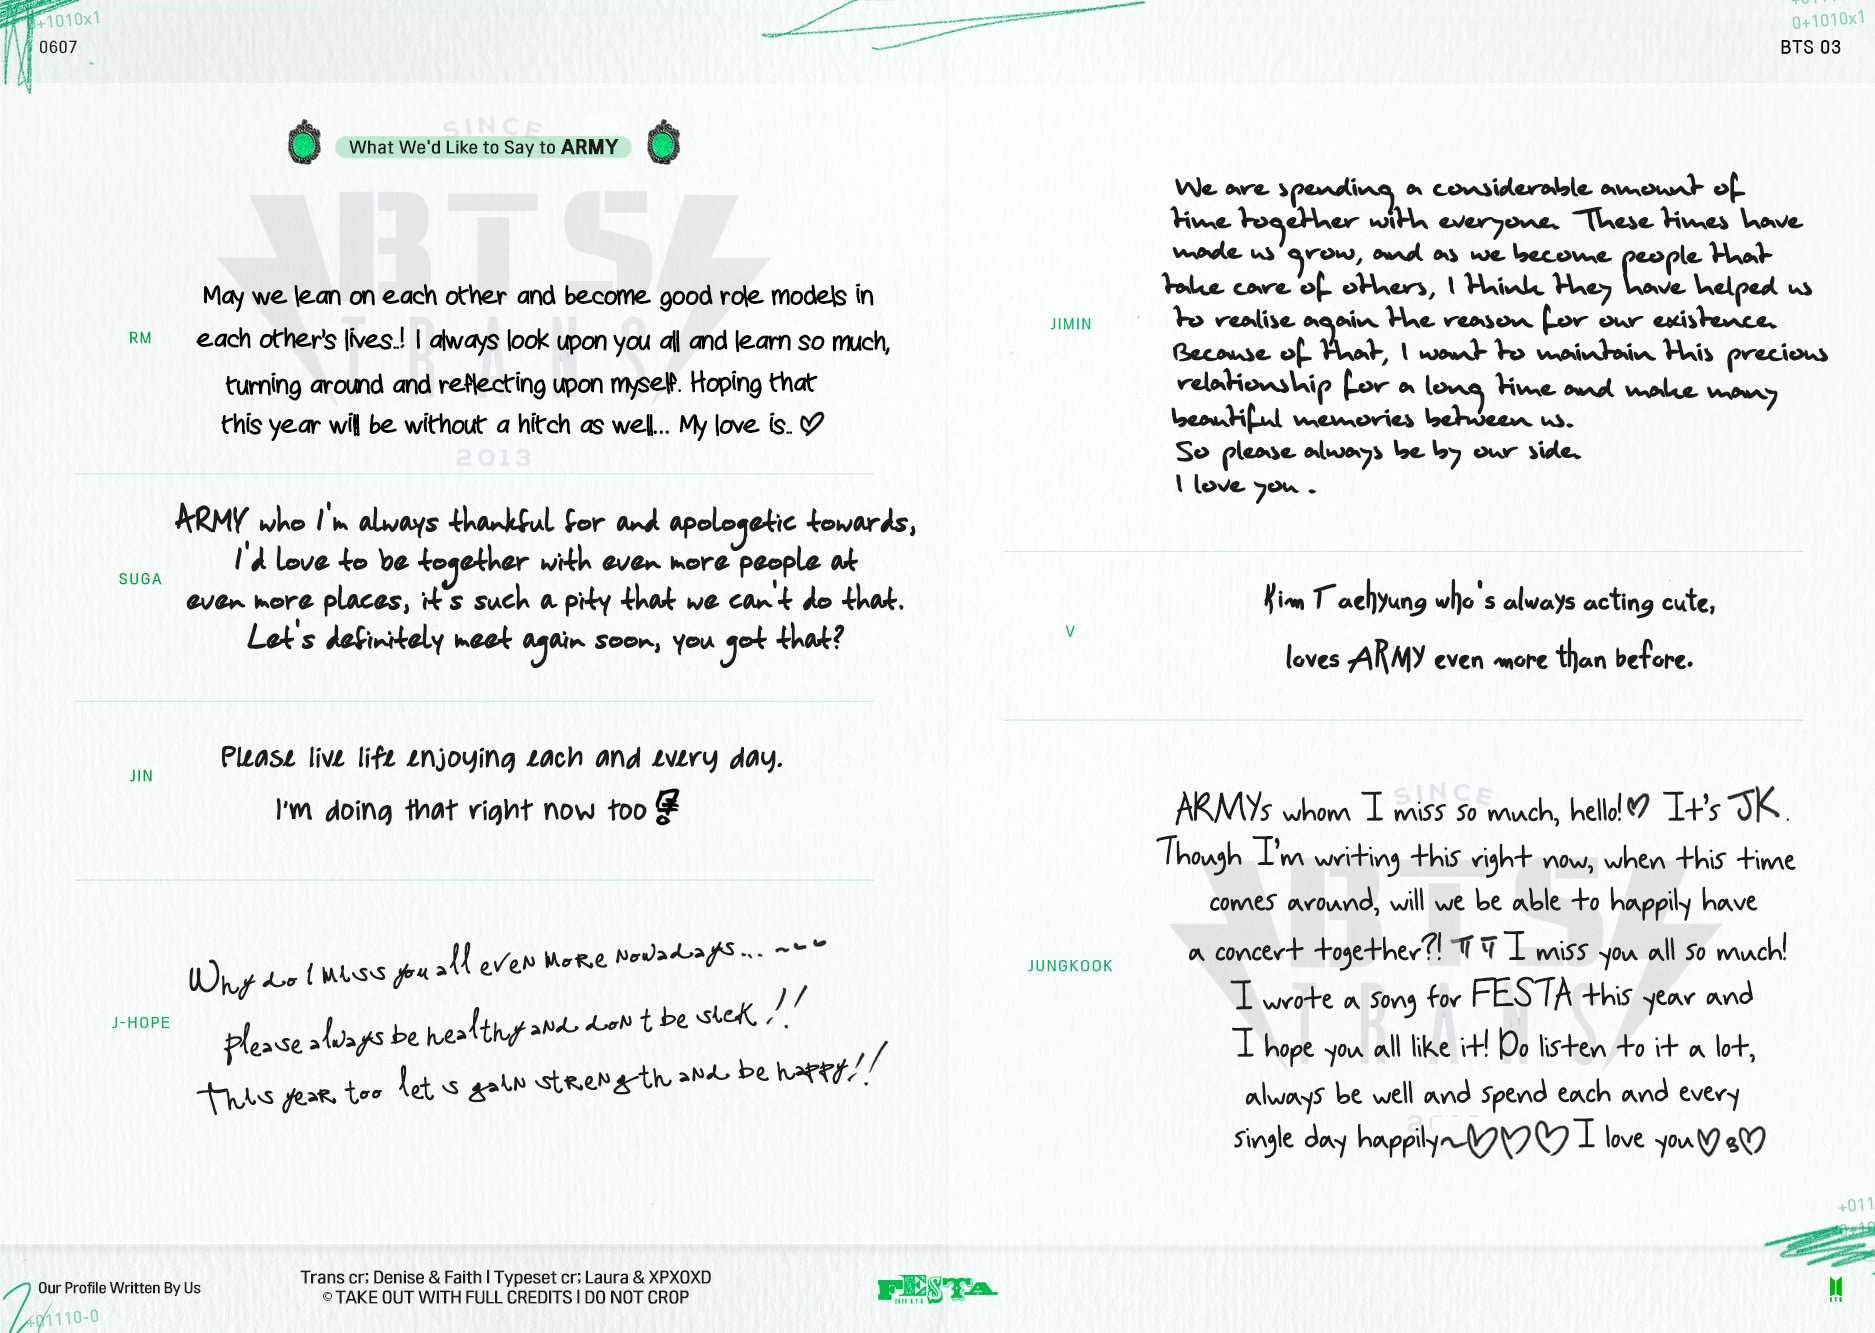 0+1010x1
0607
0+1010x1
BTS 03
SINCE
What We'd Like to Say to ARMY
BTS
TRANS
2013
RM
May we lean on each other and become good role models in
each other's lives..! I always look upon you all and learn so much,
turning around and reflecting upon myself. Hoping that
this year will be without a hitch as well... My love is.. ♡
SUGA
ARMY who I'm always thankful for and apologetic towards,
I'd love to be together with even more people at
even more places, it's such a pity that we can't do that.
Let's definitely meet again soon, you got that?
JIN
Please live life enjoying each and every day.
I'm doing that right now too!
J-HOPE
Why do I miss you all even more nowadays... ~~~
please always be healthy and don t be sick!!
This year too let s gain strength and be happy!!
JIMIN
We are spending a considerable amount of
time together with everyone. These times have
made us grow, and as we become people that
take care of others, I think they have helped us
to realise again the reason for our existence.
Because of that, I want to maintain this precious
relationship for a long time and make many
beautiful memories between us.
So please always be by our side.
I love you.
V
Kim Taehyung who's always acting cute,
loves ARMY even more than before.
SINCE
BTS
TRANS
JUNGKOOK
ARMYs whom I miss so much, hello!♡ It's JK.
Though I'm writing this right now, when this time
comes around, will we be able to happily have
a concert together?! ㅠㅠ I miss you all so much!
I wrote a song for FESTA this year and
I hope you all like it! Do listen to it a lot,
always be well and spend each and every
single day happily~♡♡♡ I love you♡3♡
+011
Our Profile Written By Us
+01110-0
Trans cr; Denise & Faith | Typeset cr; Laura & XPXOXD
© TAKE OUT WITH FULL CREDITS | DO NOT CROP
FESTA
2020 BTS
BTS